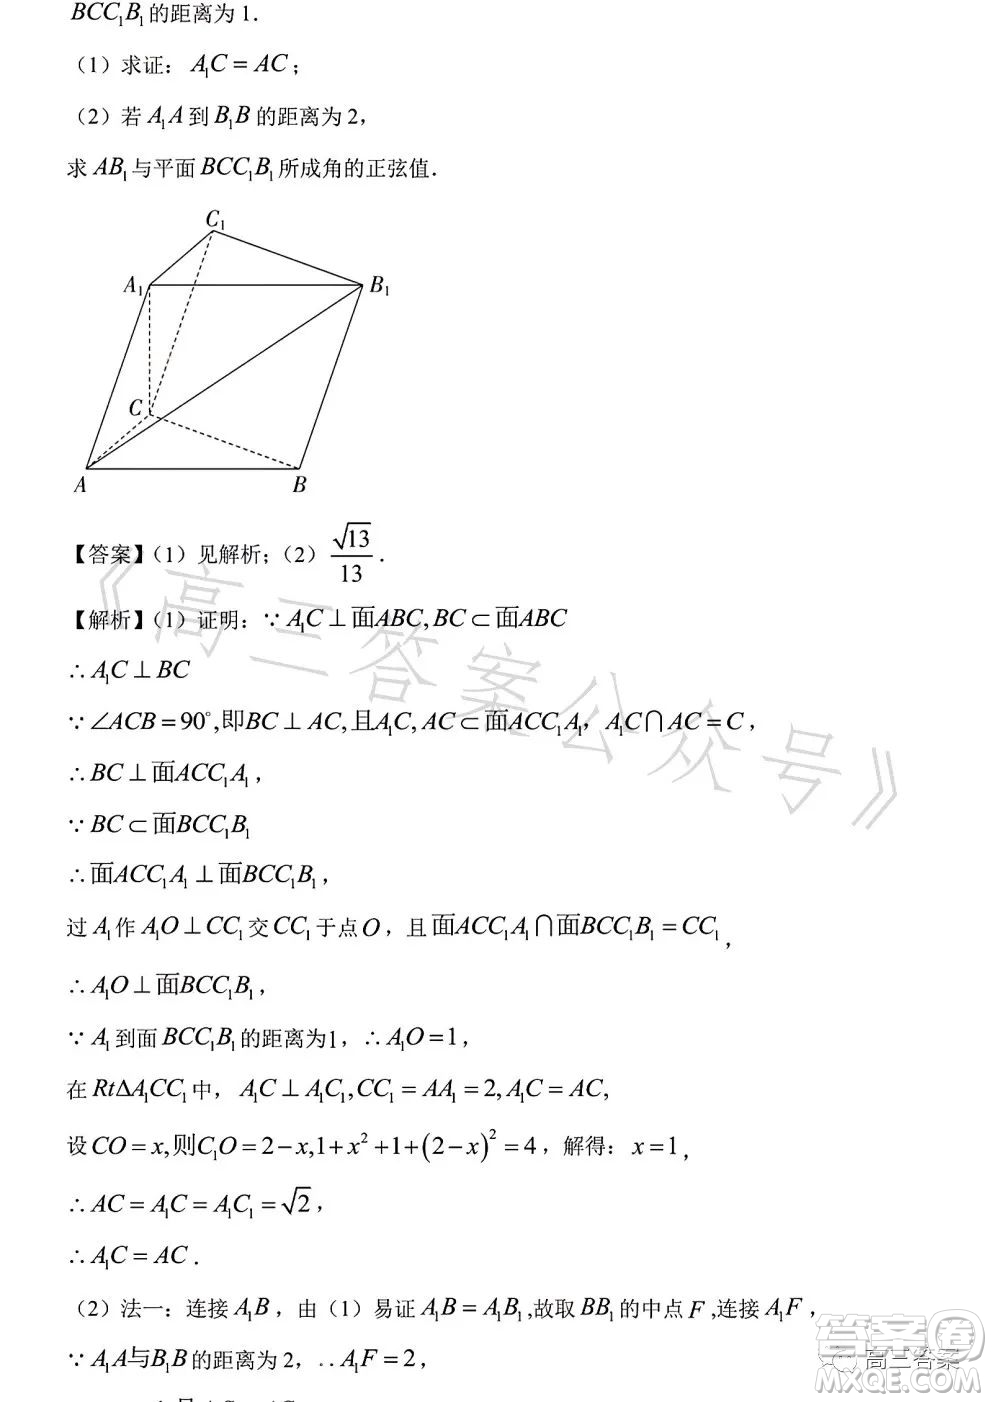 BCC₁B₁的距离为1.
（1）求证：A₁C = AC；
（2）若A₁A到B₁B的距离为2，
求AB₁与平面BCC₁B₁所成角的正弦值.
C₁
A₁
B₁
C
A
B
【答案】（1）见解析；（2）√13/13.
【解析】（1）证明：∵A₁C⊥面ABC,BC⊂面ABC
∴A₁C⊥BC
∵∠ACB=90°,即BC⊥AC,且A₁C,AC⊂面ACC₁A₁，A₁C∩AC=C，
∴BC⊥面ACC₁A₁，
∵BC⊂面BCC₁B₁
∴面ACC₁A₁⊥面BCC₁B₁，
过A₁作A₁O⊥CC₁交CC₁于点O，且面ACC₁A₁∩面BCC₁B₁=CC₁，
∴A₁O⊥面BCC₁B₁，
∵A₁到面BCC₁B₁的距离为1，∴A₁O=1，
在RtΔA₁CC₁中，A₁C⊥A₁C₁,CC₁=AA₁=2,A₁C=AC,
设CO=x,则C₁O=2−x,1+x²+1+(2−x)²=4，解得：x=1，
∴AC=A₁C=A₁C₁=√2，
∴A₁C=AC.
（2）法一：连接A₁B，由（1）易证A₁B=A₁B₁,故取BB₁的中点F,连接A₁F，
∵A₁A与B₁B的距离为2，∴A₁F=2，
《高三答案公众号》
答案圈
高三答案
MXQE.COM